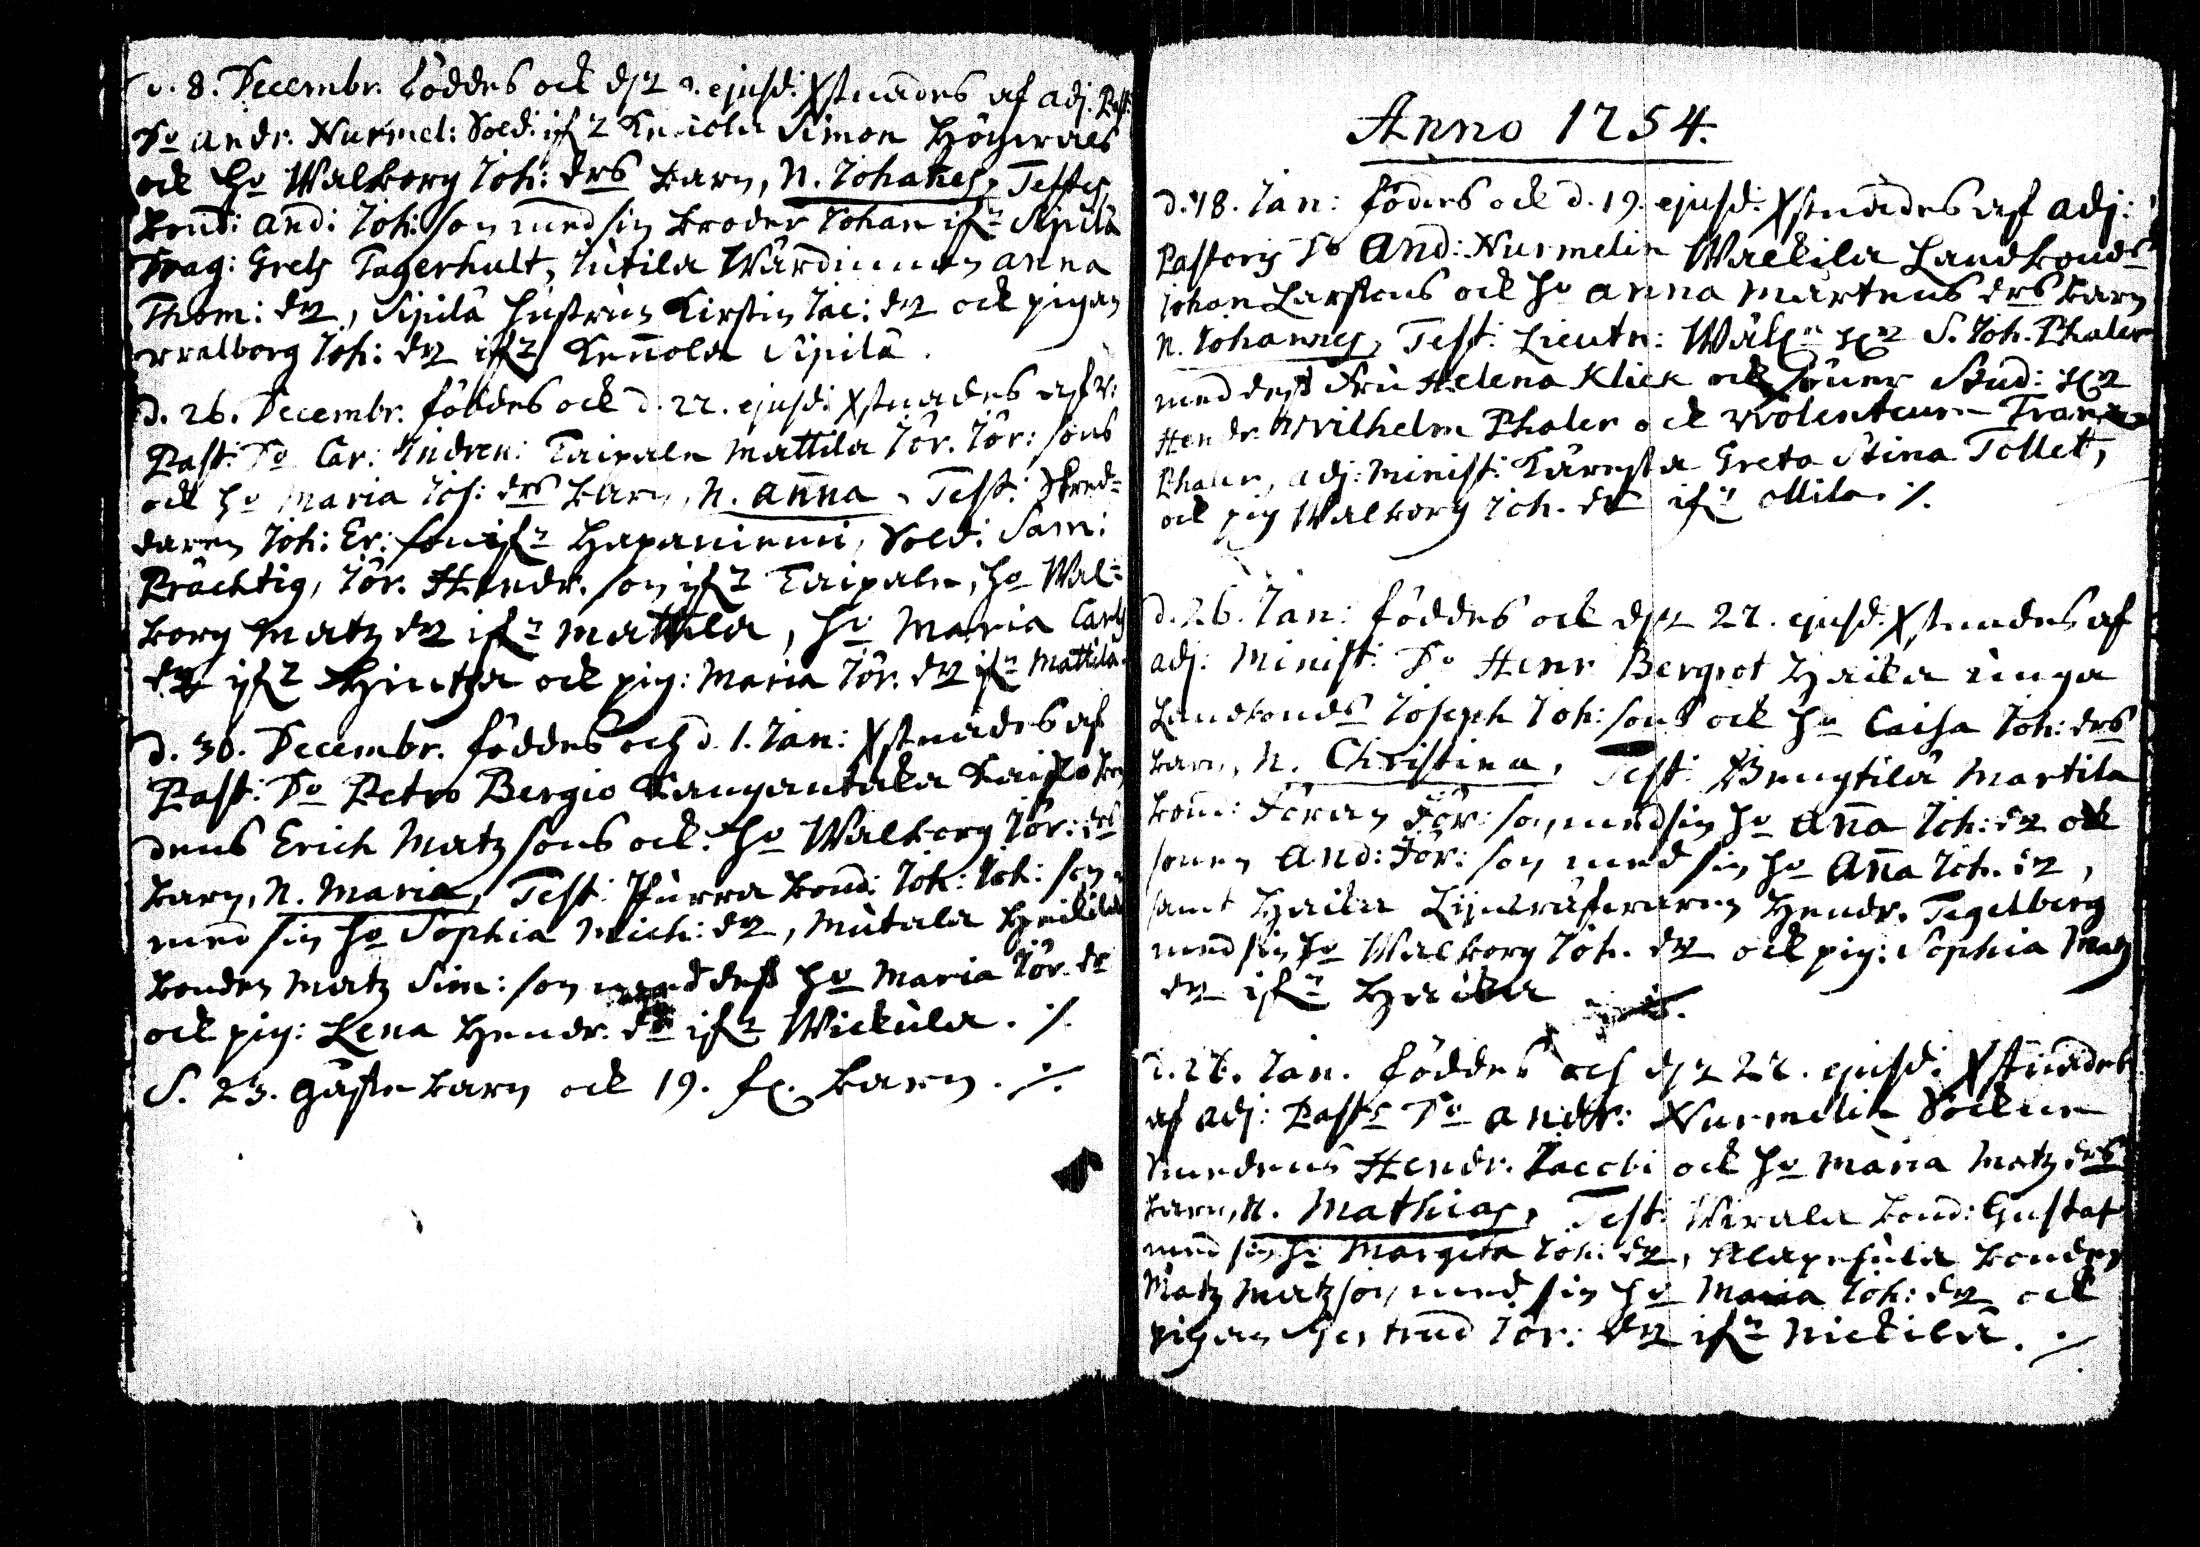 d. 8. Decembr. föddes ock den 9. ejusd: Xstnades af adj. Past:
Do Andr. Nurmel: Sold: ifr Simon Högvals
ock ho Walborg Joh: drs barn, N. Johanes, Testes,
bond: And: Joh:son med sin broder Johan ifr Sipilä
Drag: Grels Tagerhult, Jutila Wärdinnan Anna
Thom: dr, Sipilä hustrun Kirstin Jac: dr ock pigan
Walborg Joh: dr ifr Kennola Sipilä.
d. 26. Decembr. föddes ock d. 27. ejusd: Xstnades af v:
Past: Do Car: Indren: Taipale Mattila Jör. Jör: sons
ock ho Maria Joh: drs barn, N. Anna, Test: Skred=
daren Joh: Er: son ifr Hapaniemi, Sold: Sam:
Prächtig, Jör. Hendr. son ifr Taipale, ho Wal=
borg Matz dr ifr Mattila, ho Maria Carls
dr ifr Hintza ock pig: Maria Jör. dr ifr Mattila.
d. 30. Decembr. föddes och d. 1. Jan: Xstnades af
Past: Do Petro Bergio Kangantaka
Erich Matz sons ock ho Walborg Jör: drs
barn, N. Maria, Test: Purra bond: Joh: Joh: son
med sin ho Sophia Mich: dr, Mutala Heikkilä
bonden Matz Sim: son med dess ho Maria Jör. dr
ock pig: Lena Hendr. dr ifr Wickula. ./.
S. 23. gåsse barn ock 19. fl. barn. ./.
Anno 1754.
d. 18. Jan: föddes ock d. 19. ejusd: Xstnades af adj:
Pastoris Do And: Nurmelin Wackila Landbond
Johan Larssons ock ho Anna Mårtens drs barn
N. Johannes, Test: Lieutn: S. Joh. Phaler
med dess Fru Helena Klick ock söner Stud:
Hendr. Wilhelm Phaler ock Volenteurn Frans
Phaler, adj: Minist: Käresta Greta Stina Tollet,
ock pig Walborg Joh. dr ifr ./.
d. 26. Jan: föddes ock den 27. ejusd: Xstnades af
adj: Minist: Do Henr Bergrot Haika unga
Landbonds Joseph Joh: sons ock ho Caisa Joh: drs
barn, N. Christina, Test: Bengtilä Martila
bond: Jöran Jör: son med sin ho Anna Joh: dr ock
sonen And: Jör: son med sin ho Anna Joh. dr,
samt Haika Hendr. Tegelberg
med sin ho Walborg Joh. dr ock pig: Sophia Matz
dr ifr Haika ./.
Jan. föddes och den 27. ejusd: Xstnades
af adj: Pastr Do Andr: Nurmelin Socken
smedens Hendr. Jacobi ock ho Maria Matz drs
barn, N. Mathias, Test: Werala bond: Gustaf
med sin ho Margeta Joh: dr, bonden
Matz Matzson, med sin ho Maria Joh: dr ock
pigan Gertrud Jör: dr ifr Nickilä. ./.